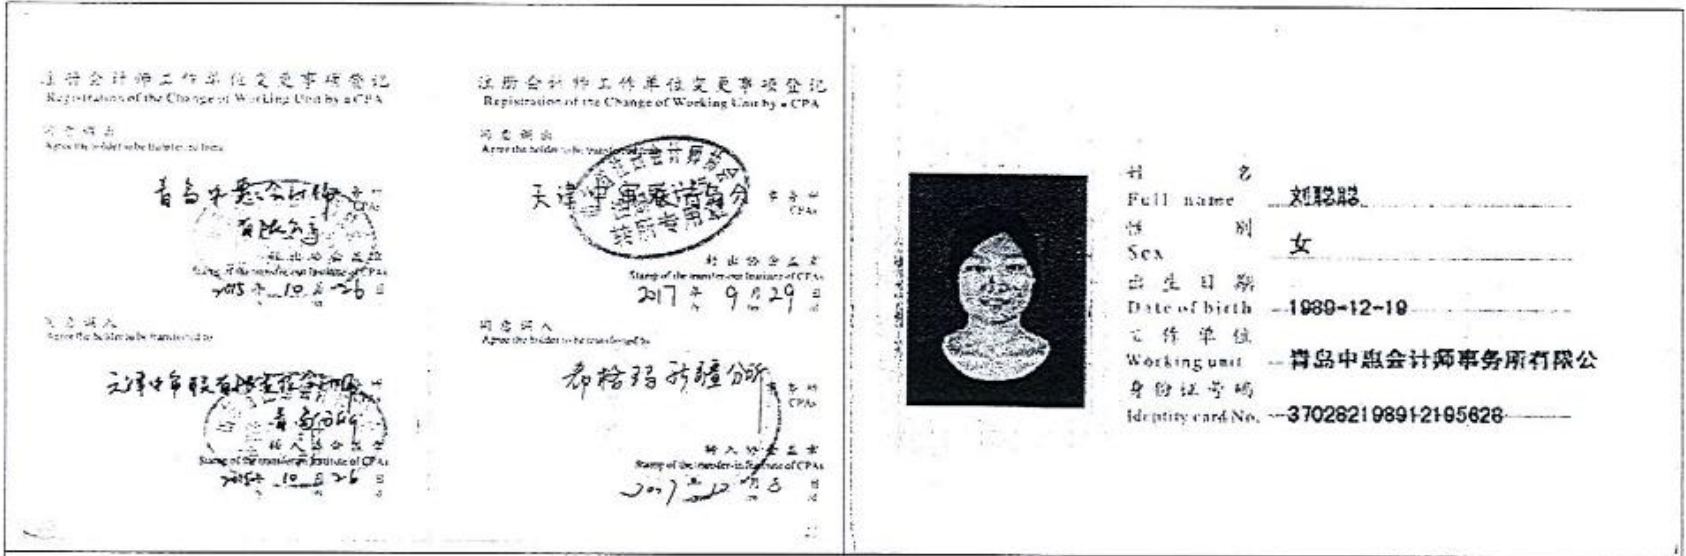 注册会计师工作单位变更事项登记
Registration of the Change of Working Unit by a CPA
同意调出
Agree the holder to be transferred from
青岛中惠会计师
事务所
CPAs
有限公司
转出协会盖章
Stamp of the transfer-out Institute of CPAs
2015年10月26日
同意调入
Agree the holder to be transferred to
事务所
CPAs
青岛分所
转入协会盖章
Stamp of the transfer-in Institute of CPAs
2015年10月26日
注册会计师工作单位变更事项登记
Registration of the Change of Working Unit by a CPA
同意调出
Agree the holder to be transferred from
天津中审联青岛分
事务所
CPAs
转所专用
转出协会盖章
Stamp of the transfer-out Institute of CPAs
2017年9月29日
同意调入
Agree the holder to be transferred to
希格玛新疆分所
事务所
CPAs
转入协会盖章
Stamp of the transfer-in Institute of CPAs
2017年12月8日
姓名
Full name 刘聪聪
性别
Sex 女
出生日期
Date of birth 1989-12-19
工作单位
Working unit 青岛中惠会计师事务所有限公
身份证号码
Identity card No. 370282198912195628